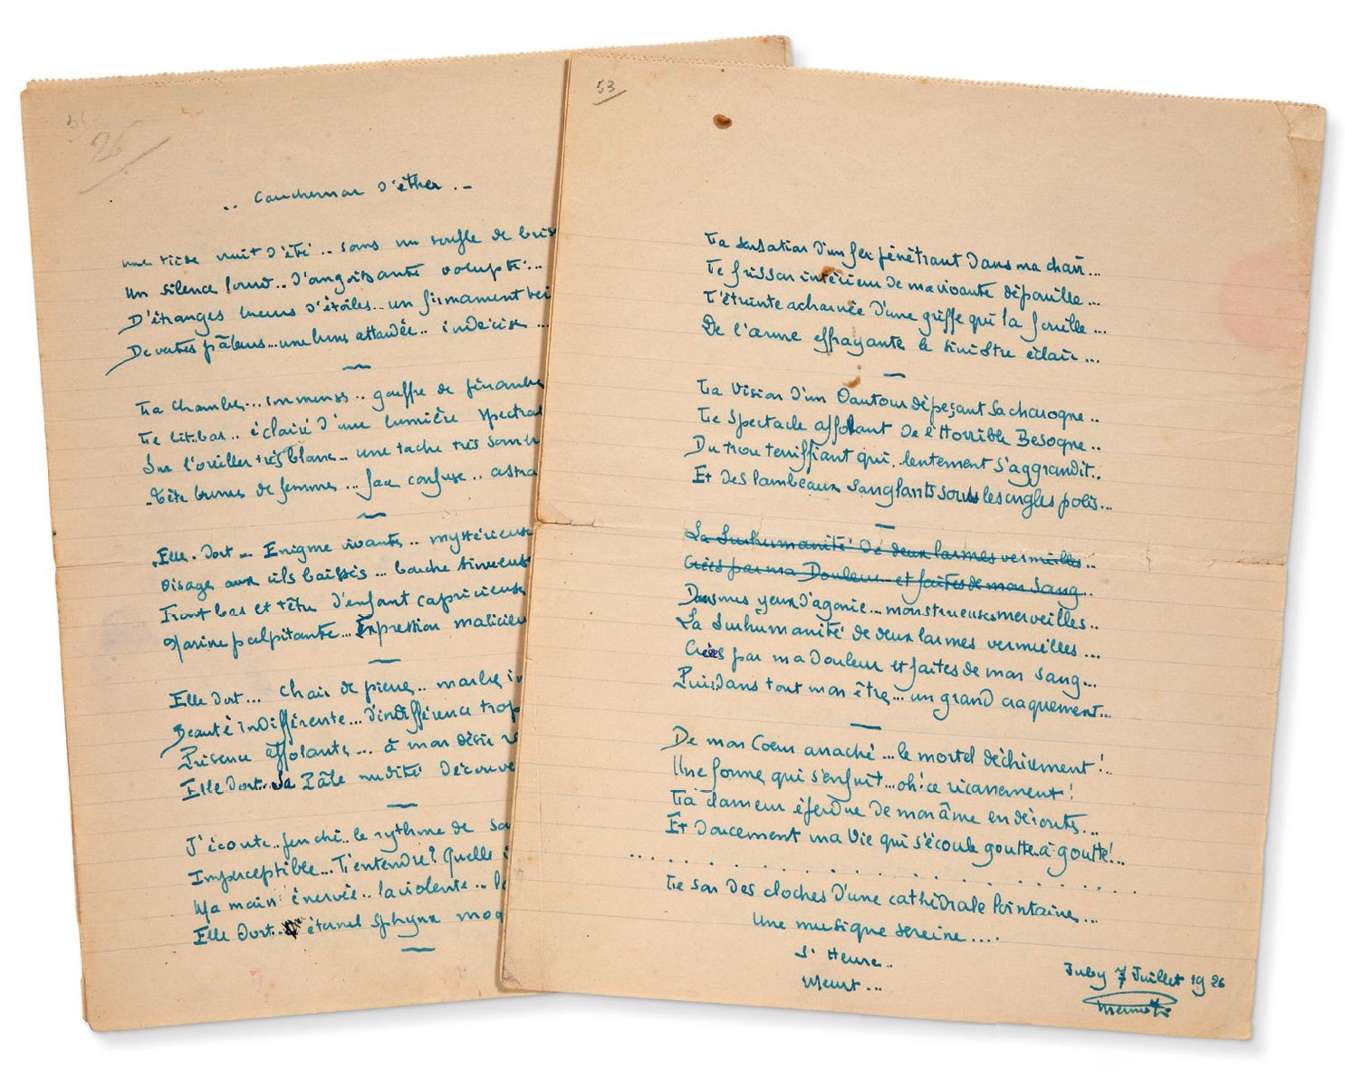 26
.. Cauchemar d'éther . -
une tiède nuit d'été .. sans un souffle de bris
Un silence lourd .. d'angoissante volupté ...
D'étranges lueurs d'étoiles .. un firmament
De vertes pâleurs ... une lune attardée .. indécise ...
La chambre ... immense .. gouffre de pénombre
Le lit bas .. éclairé d'une lumière spectral
Sur l'oreiller très blanc .. une tache très somb
.. Tête brune de femme ... face confuse .. astra
.Elle. Dort .. Enigme vivante .. mystérieuse
Visage aux cils baissés ... bouche sinueuse
Front bas et têtu d'enfant capricieuse
Narine palpitante ... Expression malicieu
Elle dort ... Chair de pierre .. marbre i
Beauté indifférente ... d'indifférence trop
Présence affolante ... à mon désir
Elle dort.. Sa Pâle nudité découve
J'écoute .. penché .. le rythme de so
Imperceptible ... L'entendre? Quelle
Ma main énervée .. la violente ..
Elle dort .. éternel sphynx moq
53
La sensation d'un fer pénétrant dans ma chair ...
Le frisson intérieur de ma vivante dépouille ...
L'étreinte acharnée d'une griffe qui la fouille ...
De l'arme effrayante le sinistre éclair ...
La Vision d'un Vautour dépeçant sa charogne ..
Le Spectacle affolant de l'Horrible Besogne ..
Du trou terrifiant qui, lentement s'aggrandit ..
Et des lambeaux sanglants sous les ongles polis ...
La Surhumanité de deux larmes vermeilles ..
Créés par ma Douleur .. et faites de mon Sang ..
Dans mes yeux d'agonie ... monstrueuses merveilles ..
La Surhumanité de deux larmes vermeilles ...
Créées par ma douleur et faites de mon sang ...
Puis, dans tout mon être ... un grand craquement ...
De mon Coeur arraché ... le mortel déchirement !..
Une forme qui s'enfuit ... oh! ce ricanement !
La clameur éperdue de mon âme en déroute ...
Et doucement ma Vie qui s'écoule goutte à goutte! ...
. . . . . . . . . . . . . . . . . . . . . . . .
Le son des cloches d'une cathédrale lointaine ...
Une musique sereine ....
L'Heure ..
Meurt ...
Juby 7 Juillet 1926
Mermoz